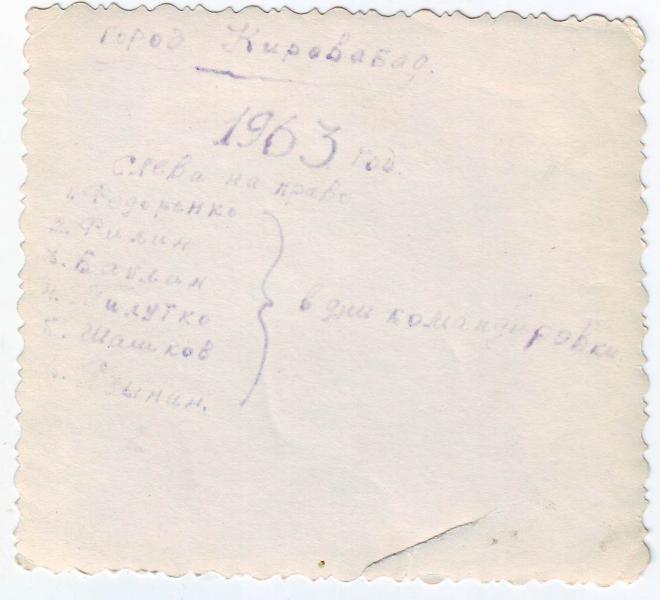 город Кировабад.
1963 год.
слева на право
1. Федоренко
2. Филин
3. Баклин
4.
5. Шашков
6.
в дни командировки